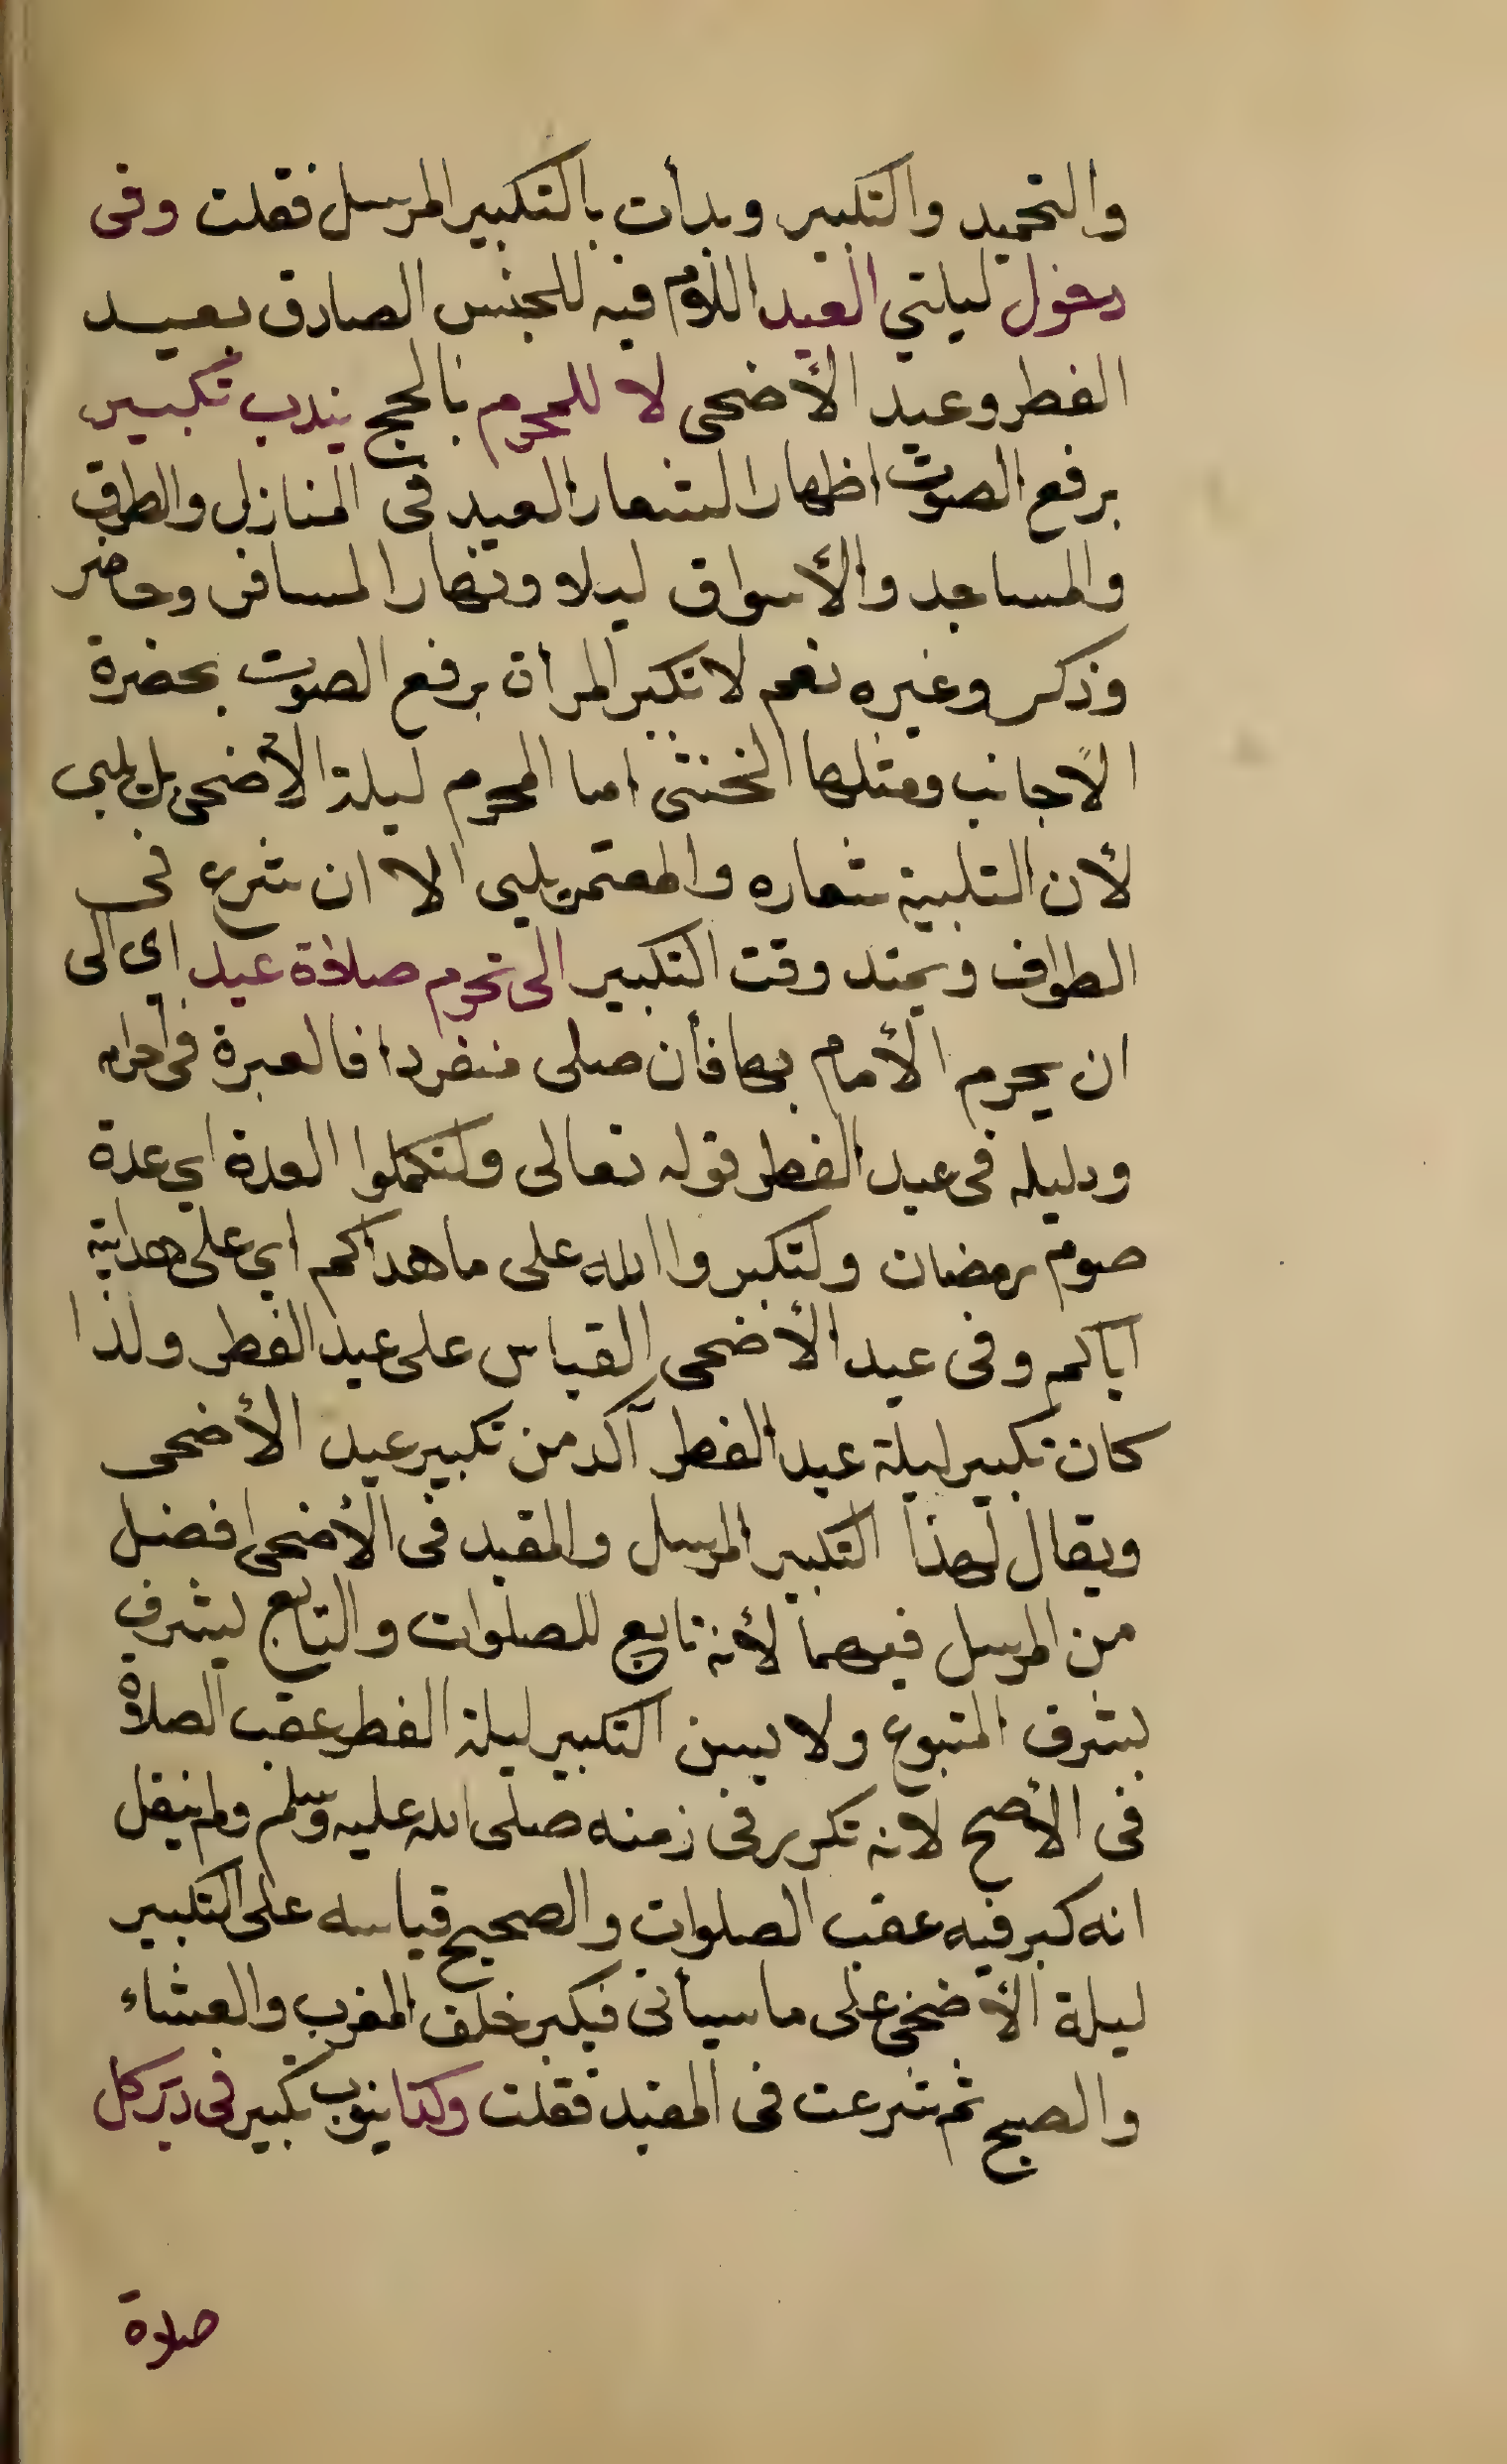 والتحميد والتكبير وبدأت بالتكبير المرسل فقلت وفى
دخول ليلتي العيد اللام فيه للجنس الصادق بعيد
الفطر وعيد الأضحى لا للمحرم بالحج يندب تكبير
برفع الصوت اظهارا لشعار العيد فى المنازل والطرق
والمساجد والأسواق ليلا ونهارا لمسافر وحاضر
وذكر وغيره نعم لا تكبر المرأة برفع الصوت بحضرة
الأجانب ومثلها الخنثى اما المحرم ليلة الأضحى بل يلبى
لأن التلبية شعاره والمعتمر يلبى الا ان شرع فى
الطواف ويمتد وقت التكبير الى تحرم صلاة عيد اى الى
ان يحرم الأمام بها فأن صلى منفردا فالعبرة فى احرامه
ودليله فى عيد الفطر قوله تعالى ولتكملوا العدة اي عدة
صوم رمضان ولتكبروا الله على ما هداكم اي على هدايته
اياكم وفى عيد الأضحى القياس على عيد الفطر ولذا
كان تكبير ليلة عيد الفطر آكد من تكبير عيد الأضحى
ويقال لهذا التكبير المرسل والمقيد فى الأضحى افضل
من المرسل فيهما لأنه تابع للصلوات والتابع يشرف
بشرف المتبوع ولا يسن التكبير ليلة الفطر عقب الصلاة
فى الأصح لانه تكرر فى زمنه صلى الله عليه وسلم ولم ينقل
انه كبر فيه عقب الصلوات والصحيح قياسه على التكبير
ليلة الأضحى على ما سيأتى فيكبر خلف المغرب والعشاء
والصبح ثم شرعت فى المقيد فقلت وكذا يندب تكبير فى دبر كل
صلاة